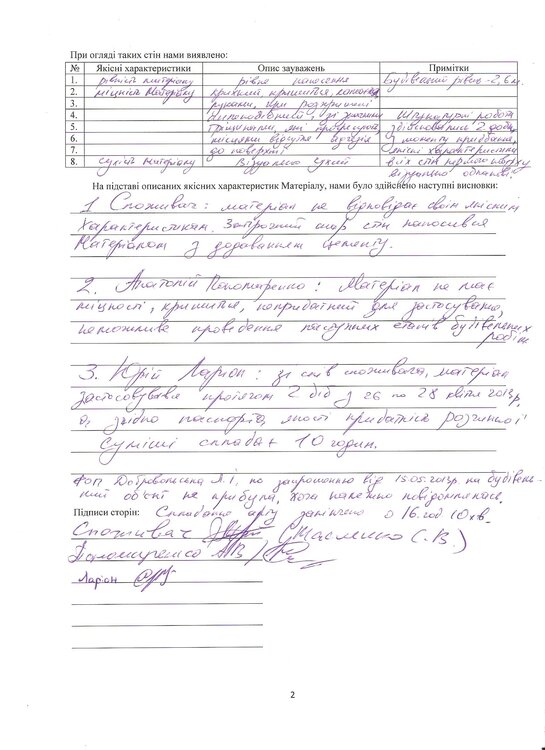 При огляді таких стін нами виявлено:
№ Якісні характеристики Опис зауважень Примітки
1. рівність матеріалу рівне нанесення Будівельний рівень - 2,6 м.
2. міцність матеріалу крихкий, кришиться,
3. руками, при
4. Штукатурні роботи
5. тріщинами, які здійснювались 2 доби
6. з моменту придбання.
7. до поверхні Якісні характеристики
8. сухість матеріалу Візуально сухий всіх стін першого поверху
візуально однакові.
На підставі описаних якісних характеристик Матеріалу, нами було здійснено наступні висновки:
1 Споживач: матеріал не відповідає своїм якісним
характеристикам. Затрочний шар стін наносився
Матеріалом з додаванням цементу.
2. Анатолій Пономаренко: Матеріал не має
міцності, кришиться, непридатний для застосування,
неможливе проведення наступних етапів будівельних
робіт
3. Юрій Ларіон: зі слів споживача, матеріал
застосовувався протягом 2 діб з 26 по 28 квітня 2013р,
а, згідно паспорта якості придатність розчинної
суміші складає 10 годин.
ФОП Добровольська Л.І, по запрошенню від 15.05.2013р. на будівель-
ний об'єкт не прибула, хоча належно повідомлялась.
Підписи сторін: Складання акту закінчено о 16.год 10хв.
Споживач (Масленко С.В.)
Пономаренко А В
Ларіон
2